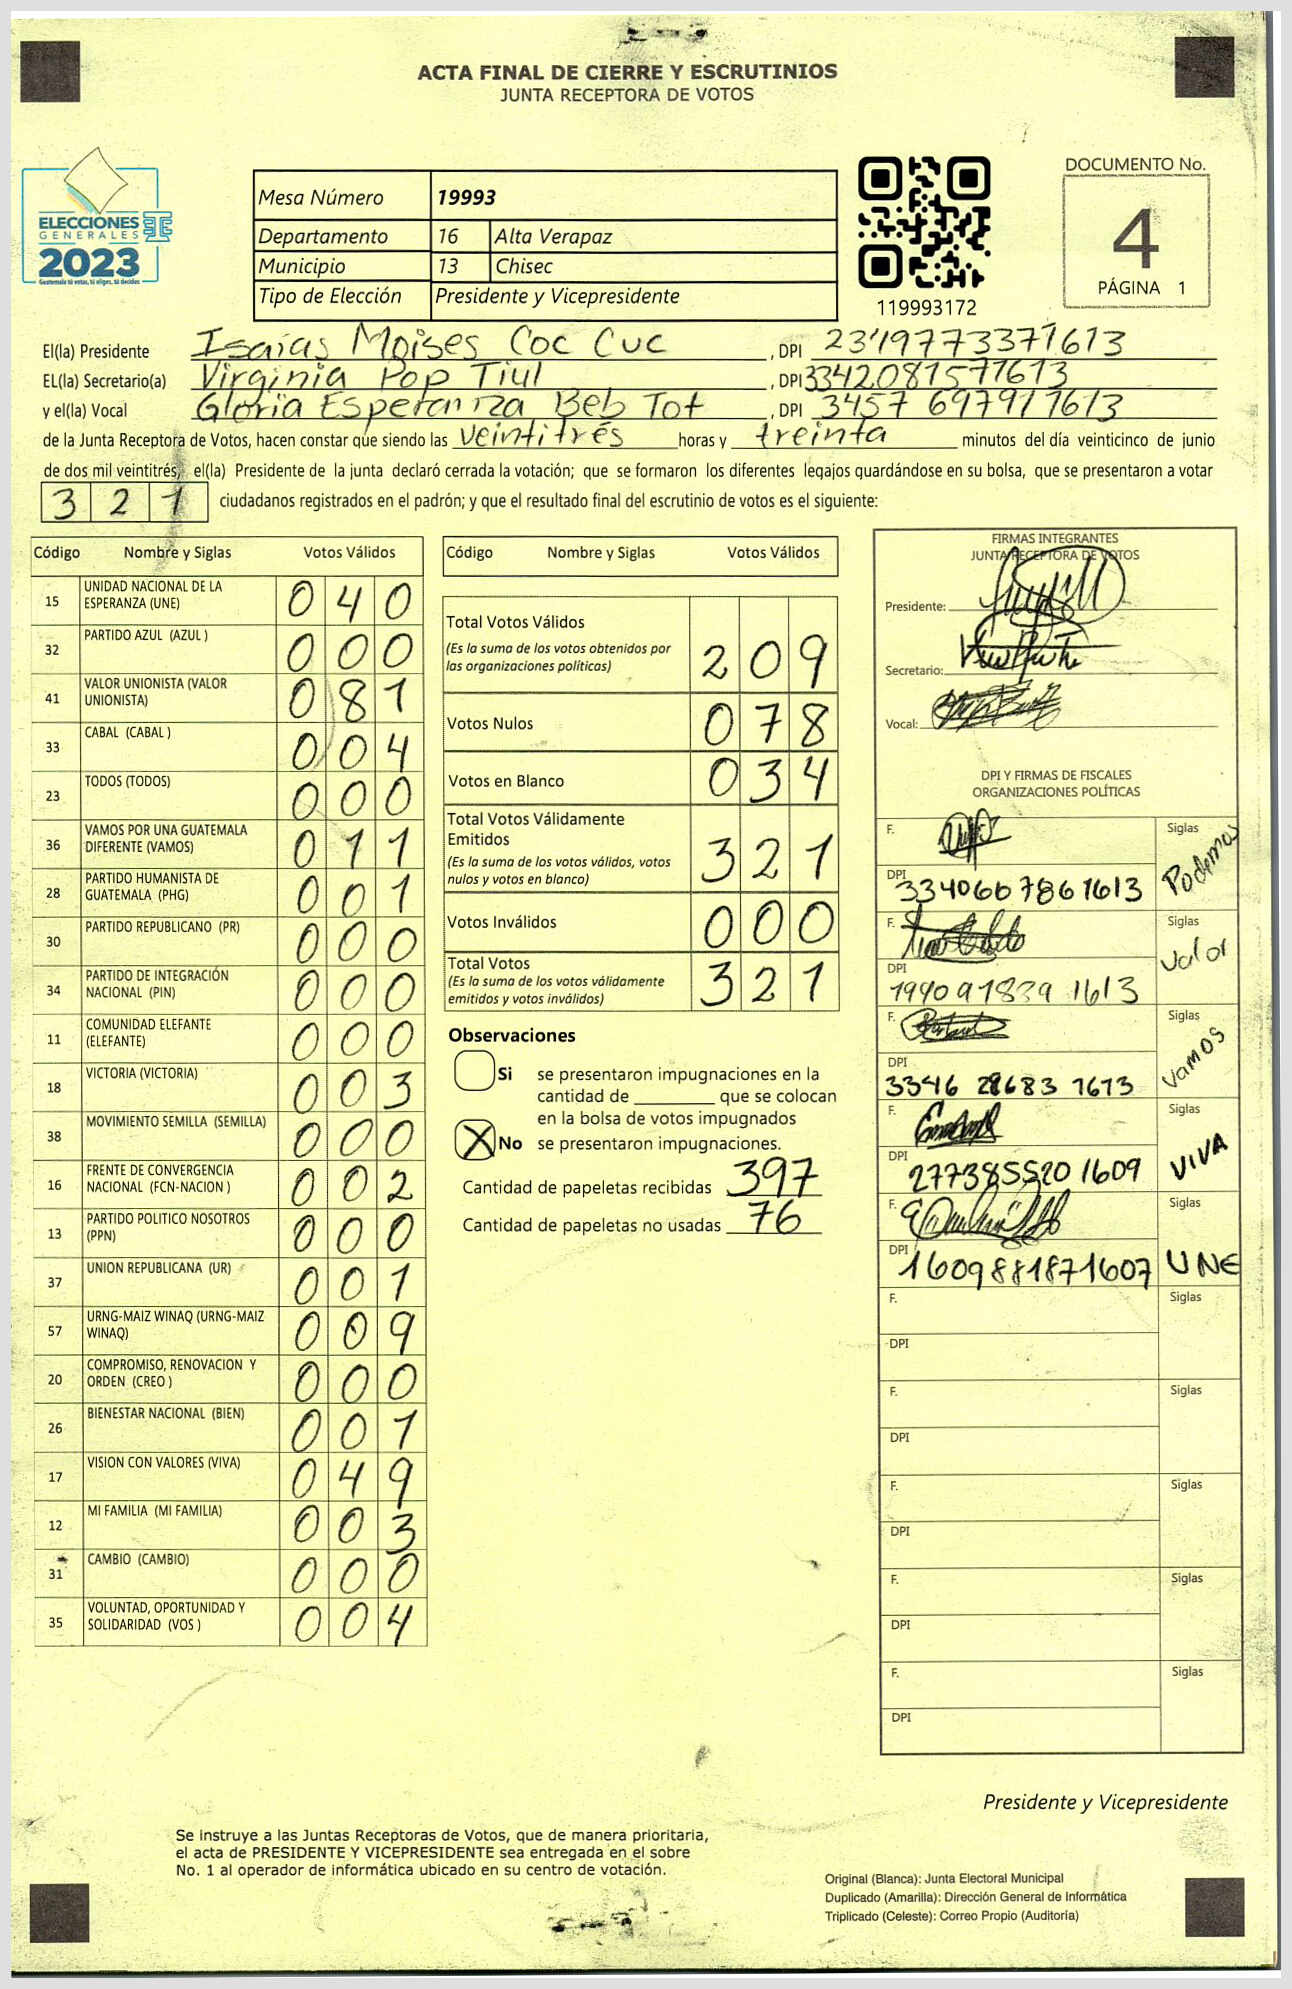 ACTA FINAL DE CIERRE Y ESCRUTINIOS
JUNTA RECEPTORA DE VOTOS
ELECCIONES
GENERALES
2023
Guatemala tú votas, tú eliges, tú decides
Mesa Número 19993
Departamento 16 Alta Verapaz
Municipio 13 Chisec
Tipo de Elección Presidente y Vicepresidente
119993172
DOCUMENTO No.
4
PÁGINA 1
El(la) Presidente Isaías Moises Coc Cuc , DPI 2319773371613
EL(la) Secretario(a) Virginia Pop Tiul , DPI 3342081571613
y el(la) Vocal Gloria Esperanza Beb Tot , DPI 3457 697911613
de la Junta Receptora de Votos, hacen constar que siendo las veintitrés horas y treinta minutos del día veinticinco de junio
de dos mil veintitrés, el(la) Presidente de la junta declaró cerrada la votación; que se formaron los diferentes legajos guardándose en su bolsa, que se presentaron a votar
321 ciudadanos registrados en el padrón; y que el resultado final del escrutinio de votos es el siguiente:
Código Nombre y Siglas Votos Válidos
15 UNIDAD NACIONAL DE LA ESPERANZA (UNE) 040
32 PARTIDO AZUL (AZUL ) 000
41 VALOR UNIONISTA (VALOR UNIONISTA) 081
33 CABAL (CABAL ) 004
23 TODOS (TODOS) 000
36 VAMOS POR UNA GUATEMALA DIFERENTE (VAMOS) 011
28 PARTIDO HUMANISTA DE GUATEMALA (PHG) 001
30 PARTIDO REPUBLICANO (PR) 000
34 PARTIDO DE INTEGRACIÓN NACIONAL (PIN) 000
11 COMUNIDAD ELEFANTE (ELEFANTE) 000
18 VICTORIA (VICTORIA) 003
38 MOVIMIENTO SEMILLA (SEMILLA) 000
16 FRENTE DE CONVERGENCIA NACIONAL (FCN-NACION ) 002
13 PARTIDO POLITICO NOSOTROS (PPN) 000
37 UNION REPUBLICANA (UR) 001
57 URNG-MAIZ WINAQ (URNG-MAIZ WINAQ) 009
20 COMPROMISO, RENOVACION Y ORDEN (CREO ) 000
26 BIENESTAR NACIONAL (BIEN) 001
17 VISION CON VALORES (VIVA) 049
12 MI FAMILIA (MI FAMILIA) 003
31 CAMBIO (CAMBIO) 000
35 VOLUNTAD, OPORTUNIDAD Y SOLIDARIDAD (VOS ) 004
Código Nombre y Siglas Votos Válidos
Total Votos Válidos 209
(Es la suma de los votos obtenidos por
las organizaciones políticas)
Votos Nulos 078
Votos en Blanco 034
Total Votos Válidamente
Emitidos 321
(Es la suma de los votos válidos, votos
nulos y votos en blanco)
Votos Inválidos 000
Total Votos 321
(Es la suma de los votos válidamente
emitidos y votos inválidos)
Observaciones
Si se presentaron impugnaciones en la
cantidad de ________ que se colocan
en la bolsa de votos impugnados
X No se presentaron impugnaciones.
Cantidad de papeletas recibidas 397
Cantidad de papeletas no usadas 76
FIRMAS INTEGRANTES
JUNTA RECEPTORA DE VOTOS
Presidente:
Secretario:
Vocal:
DPI Y FIRMAS DE FISCALES
ORGANIZACIONES POLÍTICAS
F. Siglas Podemos
DPI 3340607861613
F. Siglas Valor
DPI 1990 91839 1613
F. Siglas Vamos
DPI 1613
F. Siglas VIVA
DPI 277385520 1609
F. Siglas UNE
DPI 1609881871607
F. Siglas
DPI
F. Siglas
DPI
F. Siglas
DPI
F. Siglas
DPI
F. Siglas
DPI
Presidente y Vicepresidente
Se instruye a las Juntas Receptoras de Votos, que de manera prioritaria,
el acta de PRESIDENTE Y VICEPRESIDENTE sea entregada en el sobre
No. 1 al operador de informática ubicado en su centro de votación.
Original (Blanca): Junta Electoral Municipal
Duplicado (Amarilla): Dirección General de Informática
Triplicado (Celeste): Correo Propio (Auditoría)